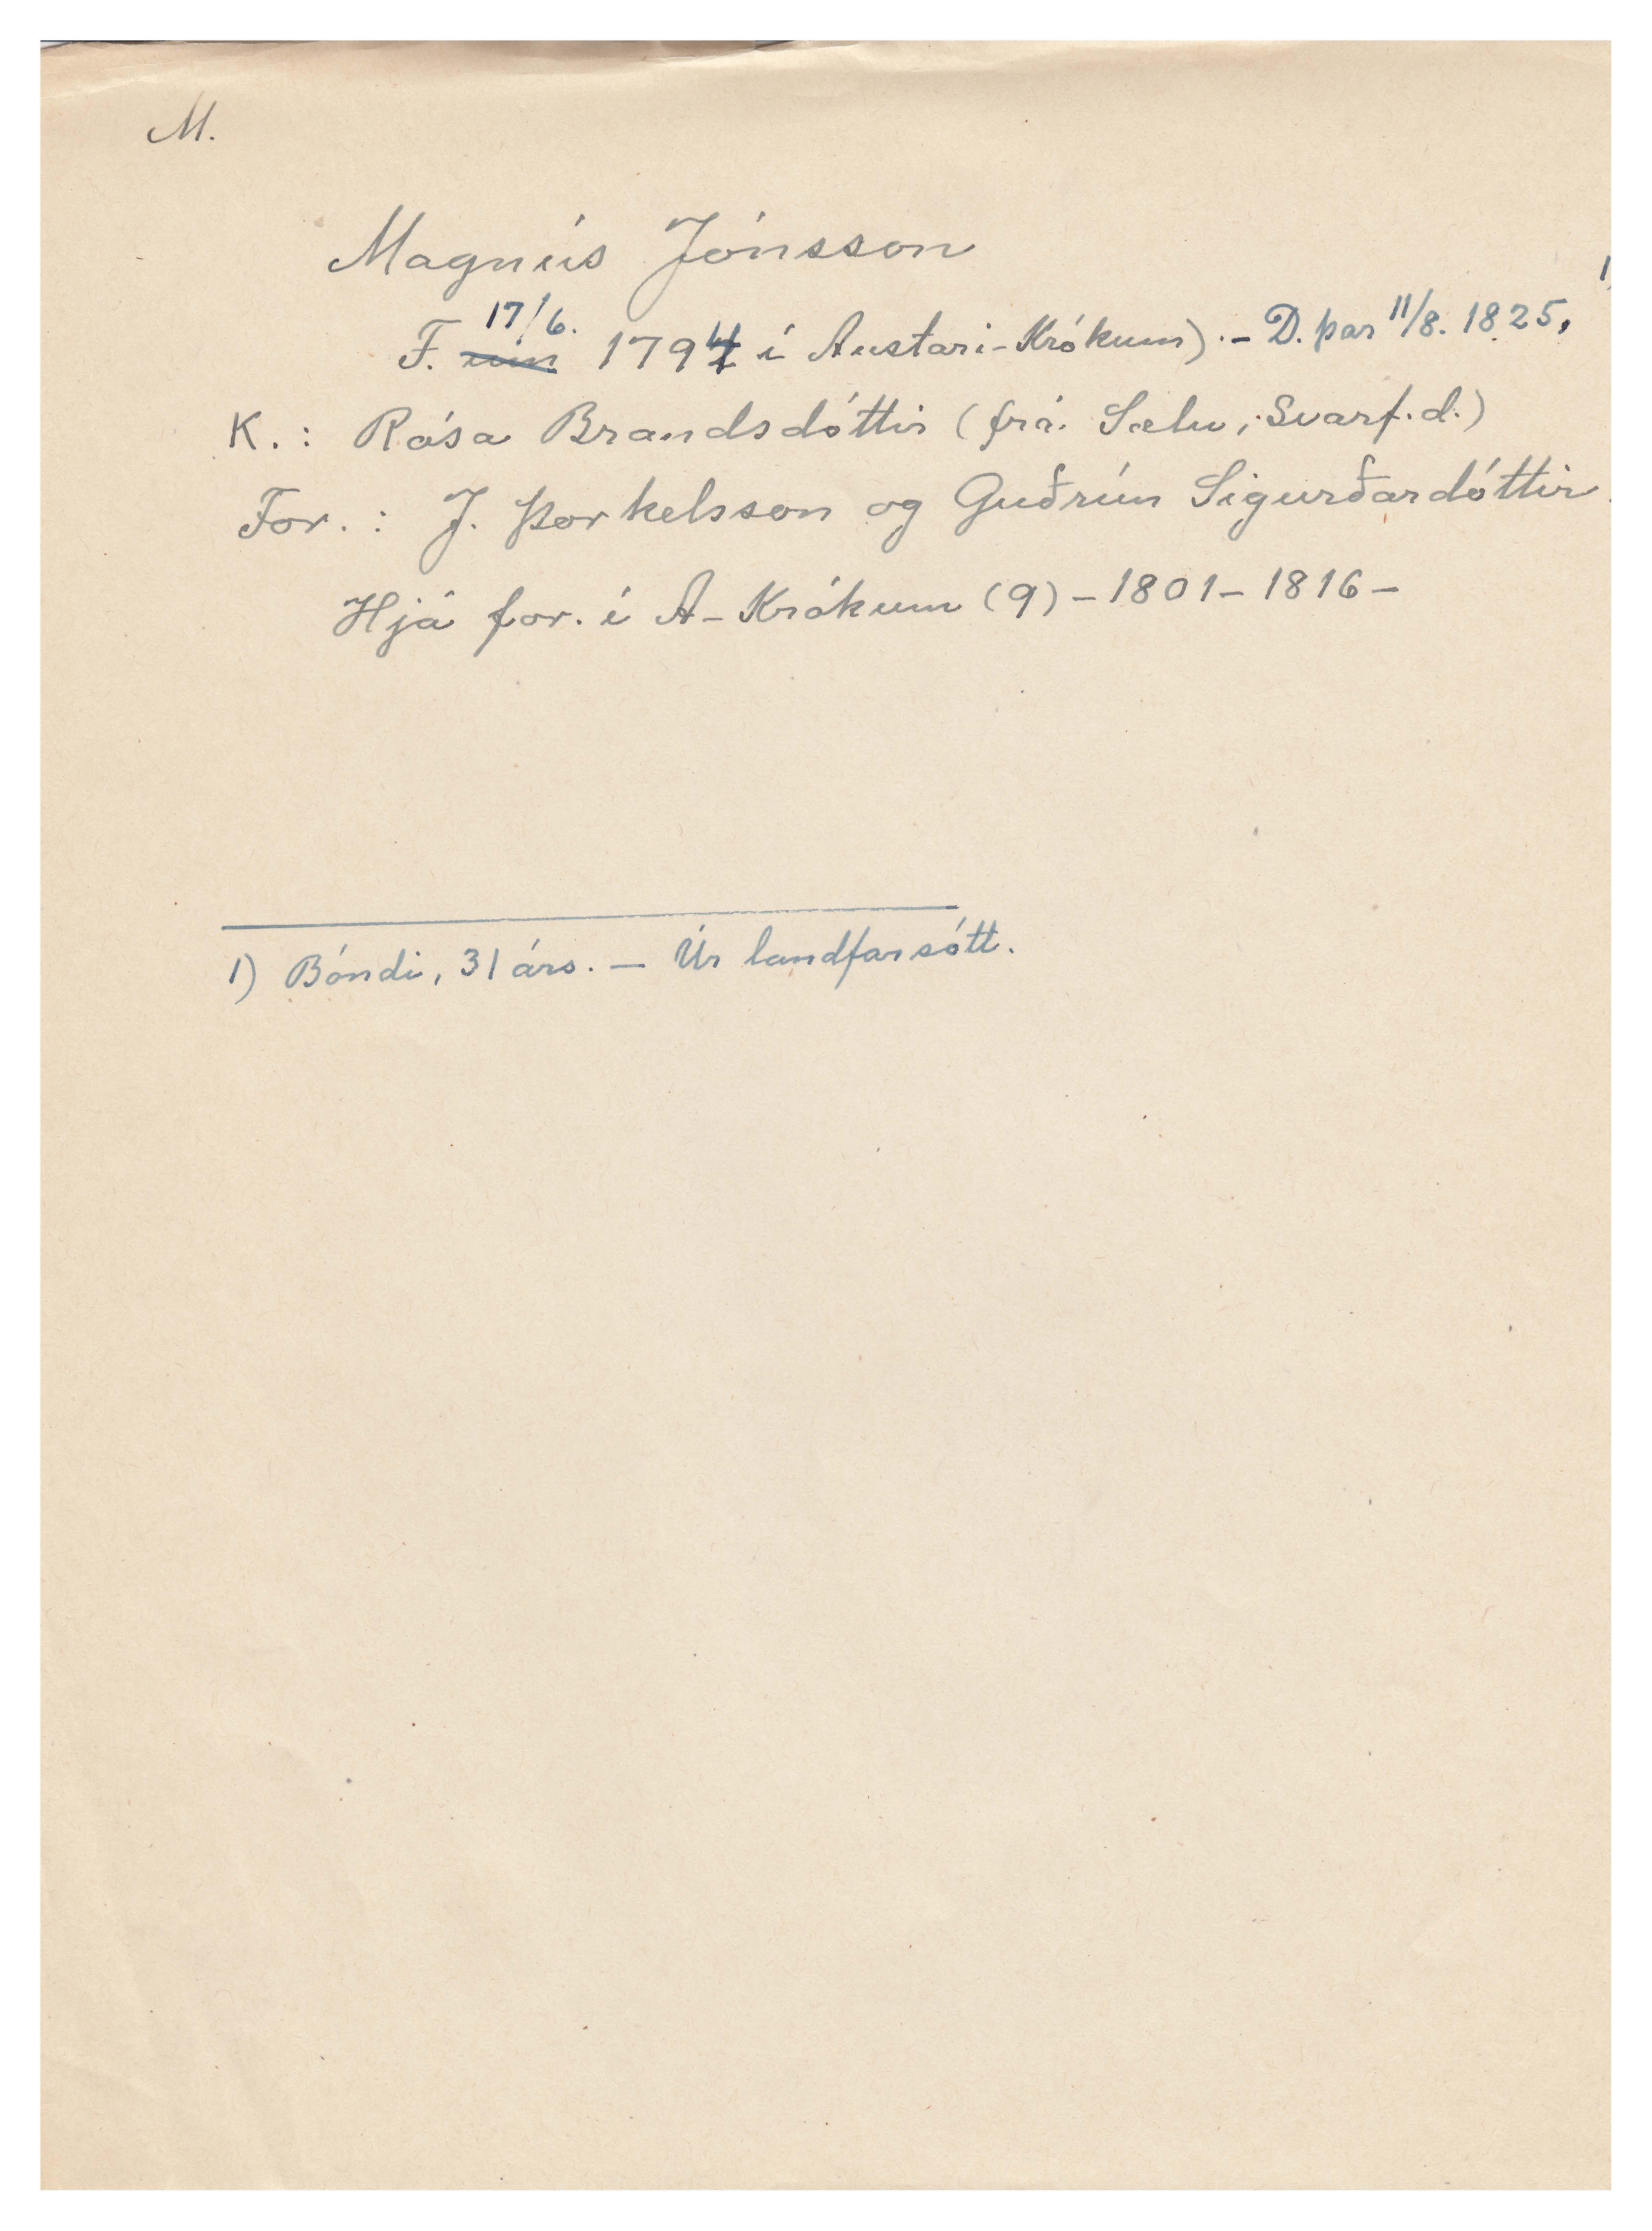 M.
Magnús Jónsson
F. 17/6. 1794 í Austari-Krókum). - D. þar 11/8. 1825, 1)
K.: Rósa Brandsdóttir (frá Sælu, Svarf.d.)
For.: J. Þorkelsson og Guðrún Sigurðardóttir.
Hjá for. í A-Krókum (9) - 1801 - 1816 -
1) Bóndi, 31 árs. - Úr landfarsótt.